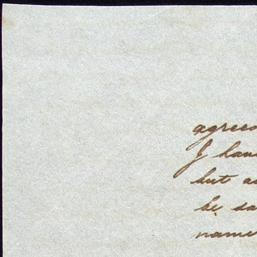 agrees
I hav
but a
be sa
name